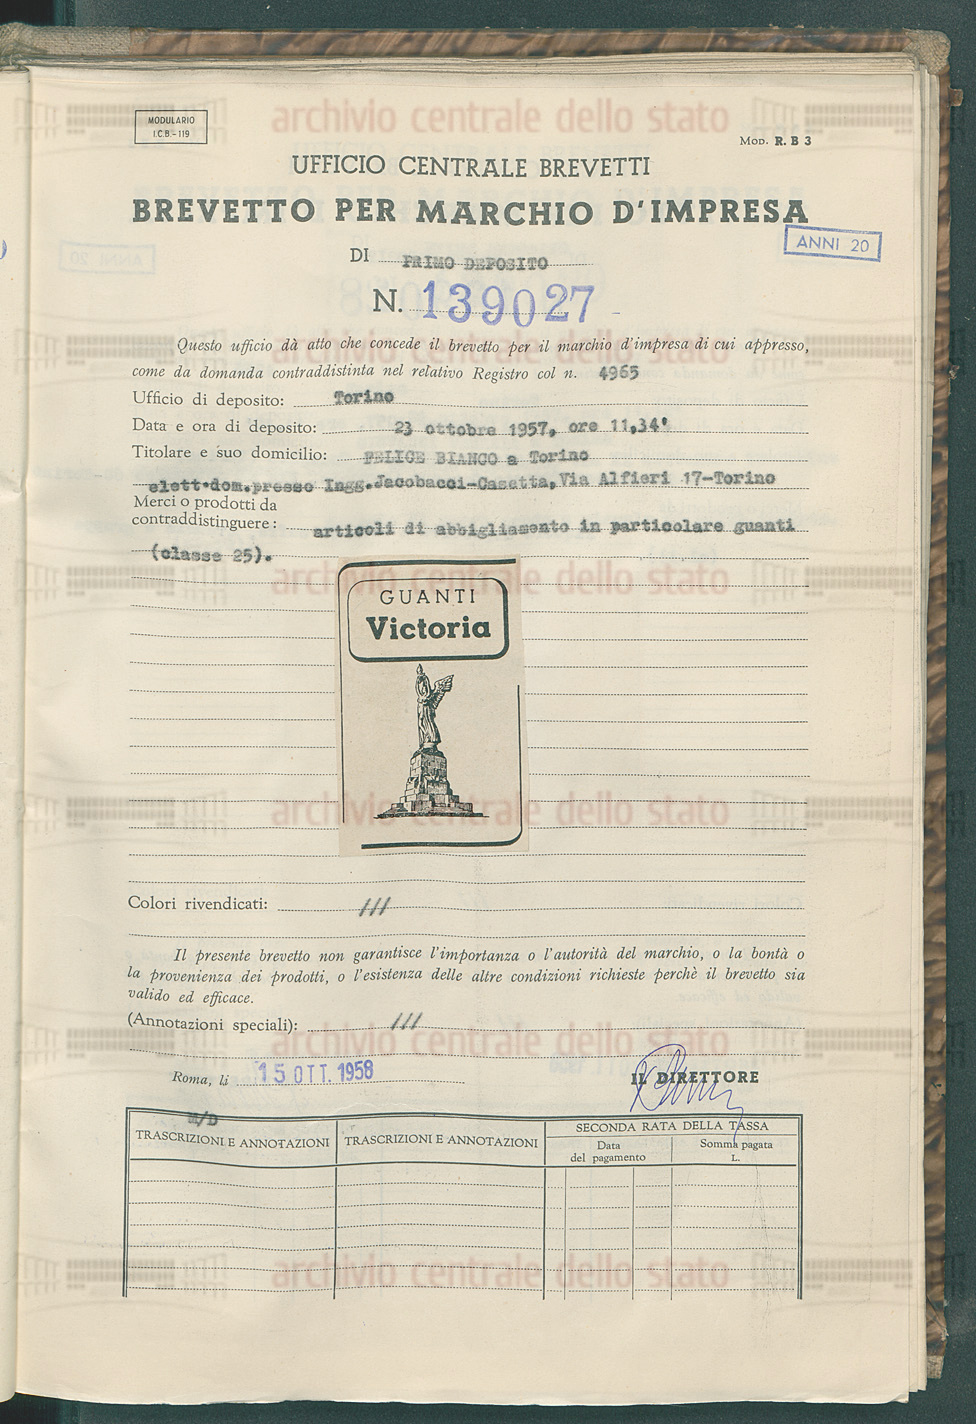 archivio centrale dello stato
MODULARIO
I.C.B. - 119
Mod. R. B 3
UFFICIO CENTRALE BREVETTI
BREVETTO PER MARCHIO D'IMPRESA
ANNI 20
DI PRIMO DEPOSITO
N. 139027
Questo ufficio dà atto che concede il brevetto per il marchio d'impresa di cui appresso,
come da domanda contraddistinta nel relativo Registro col n. 4965
Ufficio di deposito: Torino
Data e ora di deposito: 23 ottobre 1957, ore 11,34'
Titolare e suo domicilio: FELICE BIANCO a Torino
elett.dom.presso Ingg.Jacobacci-Casetta, Via Alfieri 17-Torino
Merci o prodotti da
contraddistinguere: articoli di abbigliamento in particolare guanti
(classe 25).
archivio centrale dello stato
GUANTI
Victoria
archivio centrale dello stato
Colori rivendicati: ///
Il presente brevetto non garantisce l'importanza o l'autorità del marchio, o la bontà o
la provenienza dei prodotti, o l'esistenza delle altre condizioni richieste perchè il brevetto sia
valido ed efficace.
(Annotazioni speciali): ///
archivio centrale dello stato
Roma, li 15 OTT. 1958
IL DIRETTORE
M/D
TRASCRIZIONI E ANNOTAZIONI
TRASCRIZIONI E ANNOTAZIONI
SECONDA RATA DELLA TASSA
Data
del pagamento
Somma pagata
L.
archivio centrale dello stato